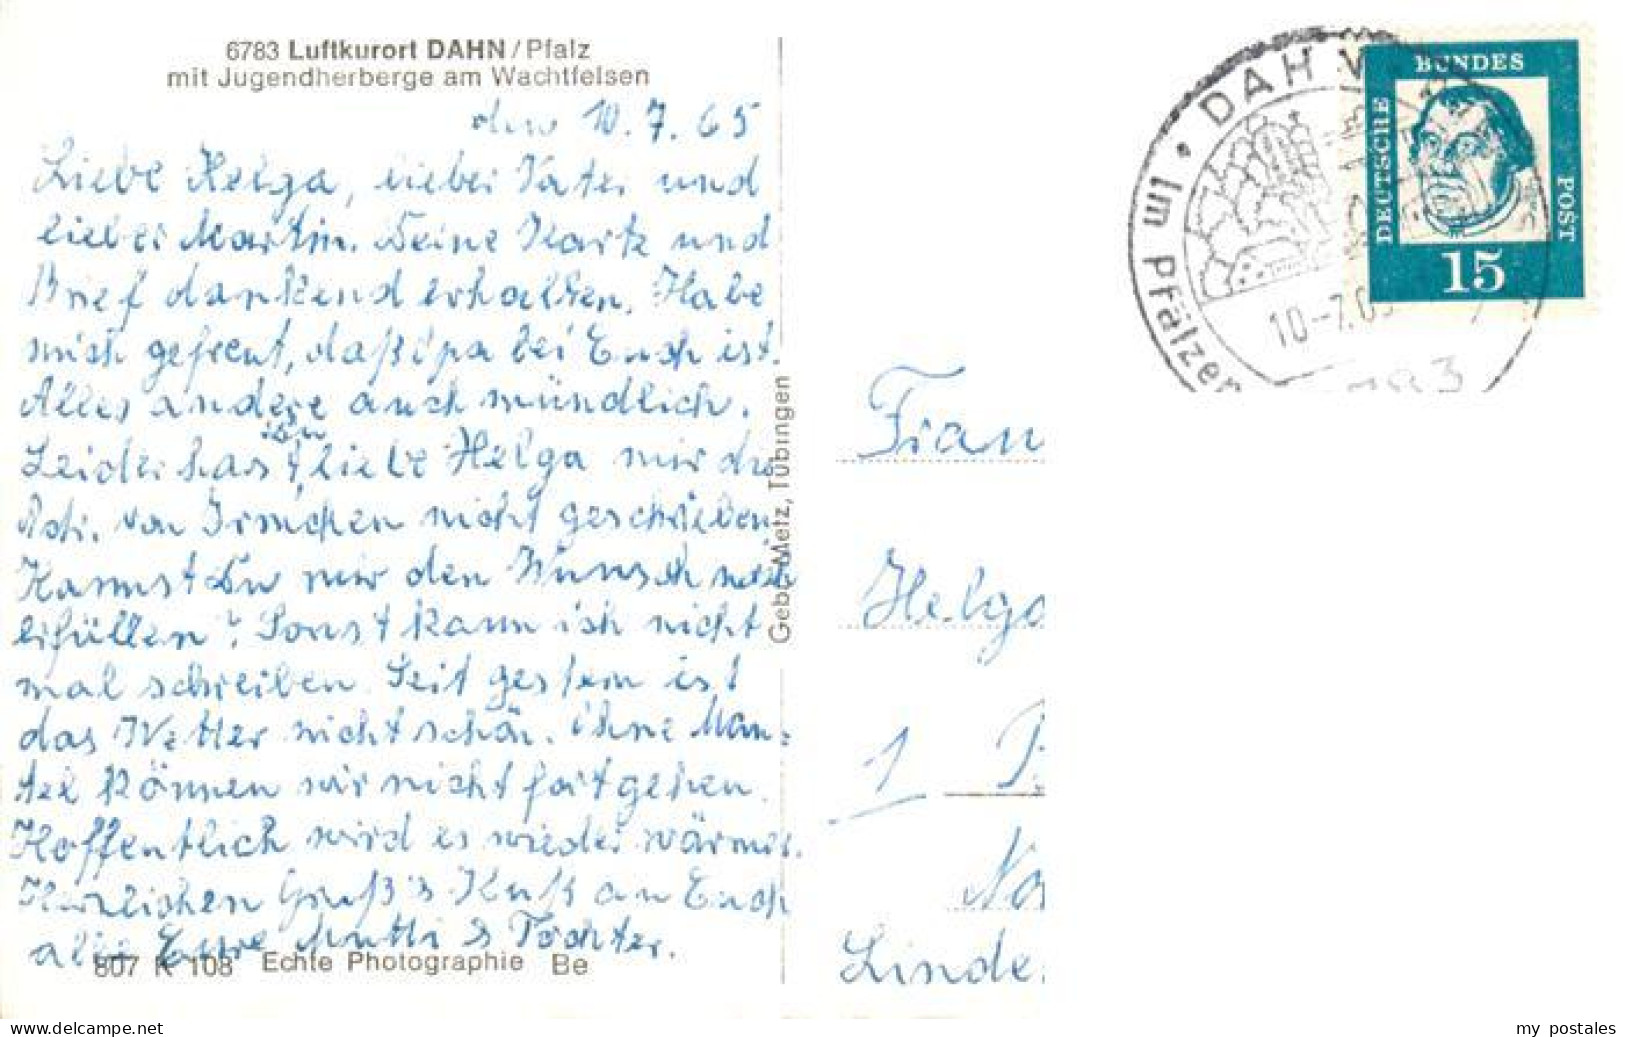 6783 Luftkurort DAHN/Pfalz
mit Jugendherberge am Wachtfelsen
den 10.7.65
Liebe Helga, lieber Vater und
lieber Martin. Deine Karte und
Brief dankend erhalten. Habe
mich gefreut, daß Opa bei Euch ist.
Alles andere auch mündlich.
Leider hast liebe Helga mir die
Adr. von Irmchen nicht geschrieben.
Kannst Du mir den Wunsch noch
erfüllen? Sonst kann ich nicht
mal schreiben. Seit gestern ist
das Wetter nicht schön. Ohne Man=
tel können wir nicht fortgehen.
Hoffentlich wird es wieder wärmer.
Herzlichen Gruß & Kuß an Euch
alle Eure Mutti & Tochter.
807 K 108 Echte Photographie Be
Gebr. Metz, Tübingen
Frau
Helga
1
Linde
DAHN
im Pfälzer
10.-7.6
DEUTSCHE BUNDES POST
15
my postales
www.delcampe.net